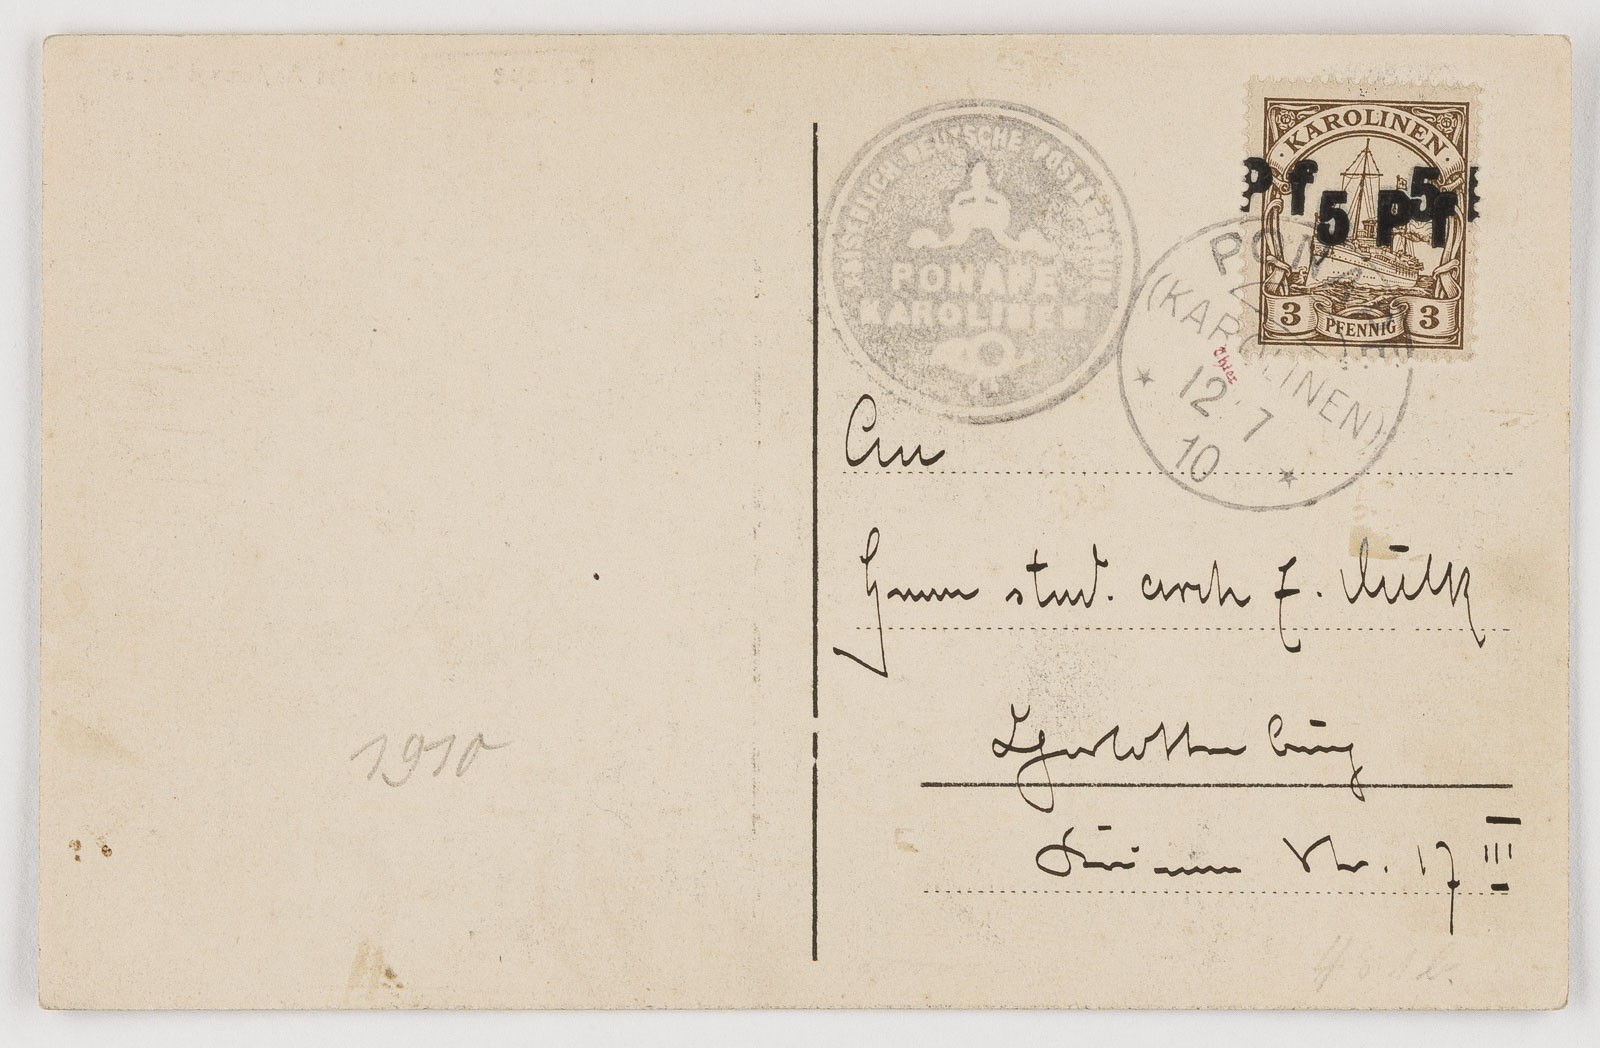 KAISERLICH DEUTSCHE POSTAGENTUR
PONAPE
KAROLINEN
KAROLINEN
Pf 5 Pf 5
3 PFENNIG 3
PONAPE
(KAROLINEN)
12 7
10
An
Herrn stud. arch E.
Charlottenburg
Str. 17 III
1910